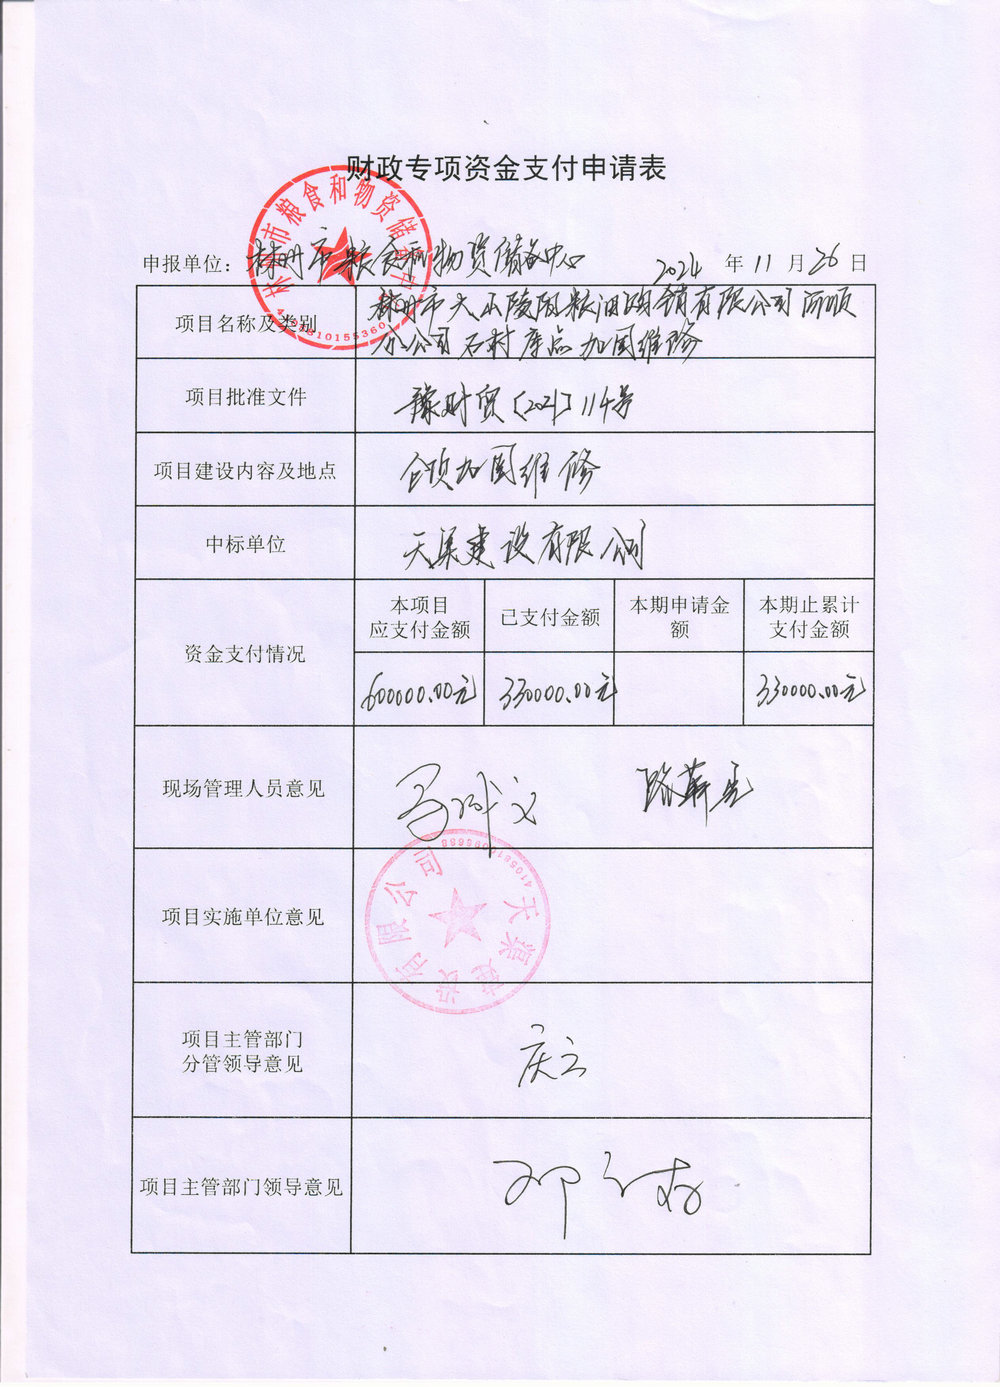 财政专项资金支付申请表
申报单位：林州市粮食和物资储备中心 2024年11月26日
项目名称及类别
林州市大山陵阳粮油购销有限公司河顺
分公司石村库点加固维修
项目批准文件
豫财贸〔2021〕114号
项目建设内容及地点
仓顶加固维修
中标单位
天渠建设有限公司
资金支付情况
本项目 应支付金额
已支付金额
本期申请金额
本期止累计 支付金额
600000.00元
330000.00元
330000.00元
现场管理人员意见
项目实施单位意见
天渠建设有限公司
项目主管部门
分管领导意见
庆云
项目主管部门领导意见